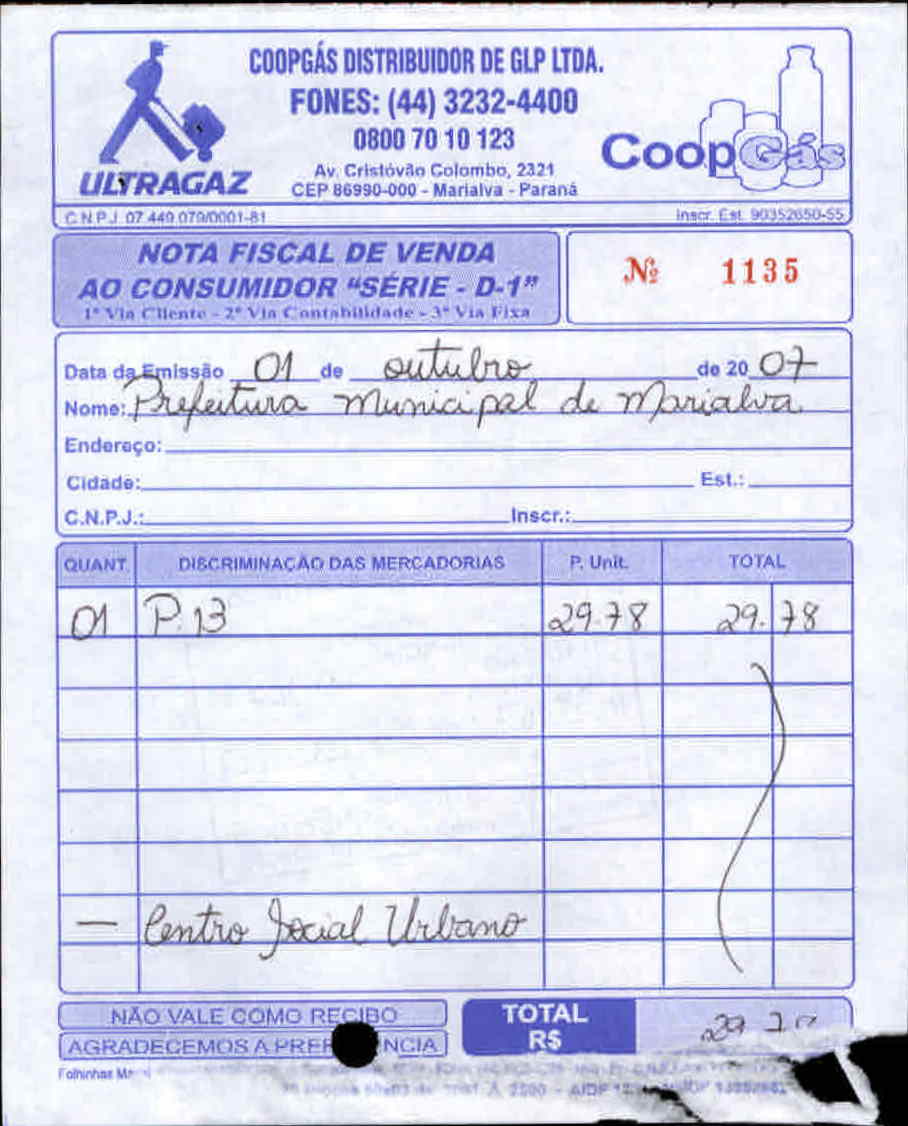 COOPGÁS DISTRIBUIDOR DE GLP LTDA.
FONES: (44) 3232-4400
0800 70 10 123
Av. Cristóvão Colombo, 2321
CEP 86990-000 - Marialva - Paraná
ULTRAGAZ
CoopGás
C.N.P.J. 07.449.079/0001-81
Inscr. Est. 90352650-55
NOTA FISCAL DE VENDA
AO CONSUMIDOR "SÉRIE - D-1"
1ª Via Cliente - 2ª Via Contabilidade - 3ª Via Fixa
Nº 1135
Data da Emissão 01 de outubro de 2007
Nome: Prefeitura Municipal de Marialva
Endereço:
Cidade: Est.:
C.N.P.J.: Inscr.:
QUANT. DISCRIMINAÇÃO DAS MERCADORIAS P. Unit. TOTAL
01 P.13 29.78 29.78
— Centro Social Urbano
NÃO VALE COMO RECIBO
AGRADECEMOS A PREF NCIA
TOTAL
R$
29
Folhinhas